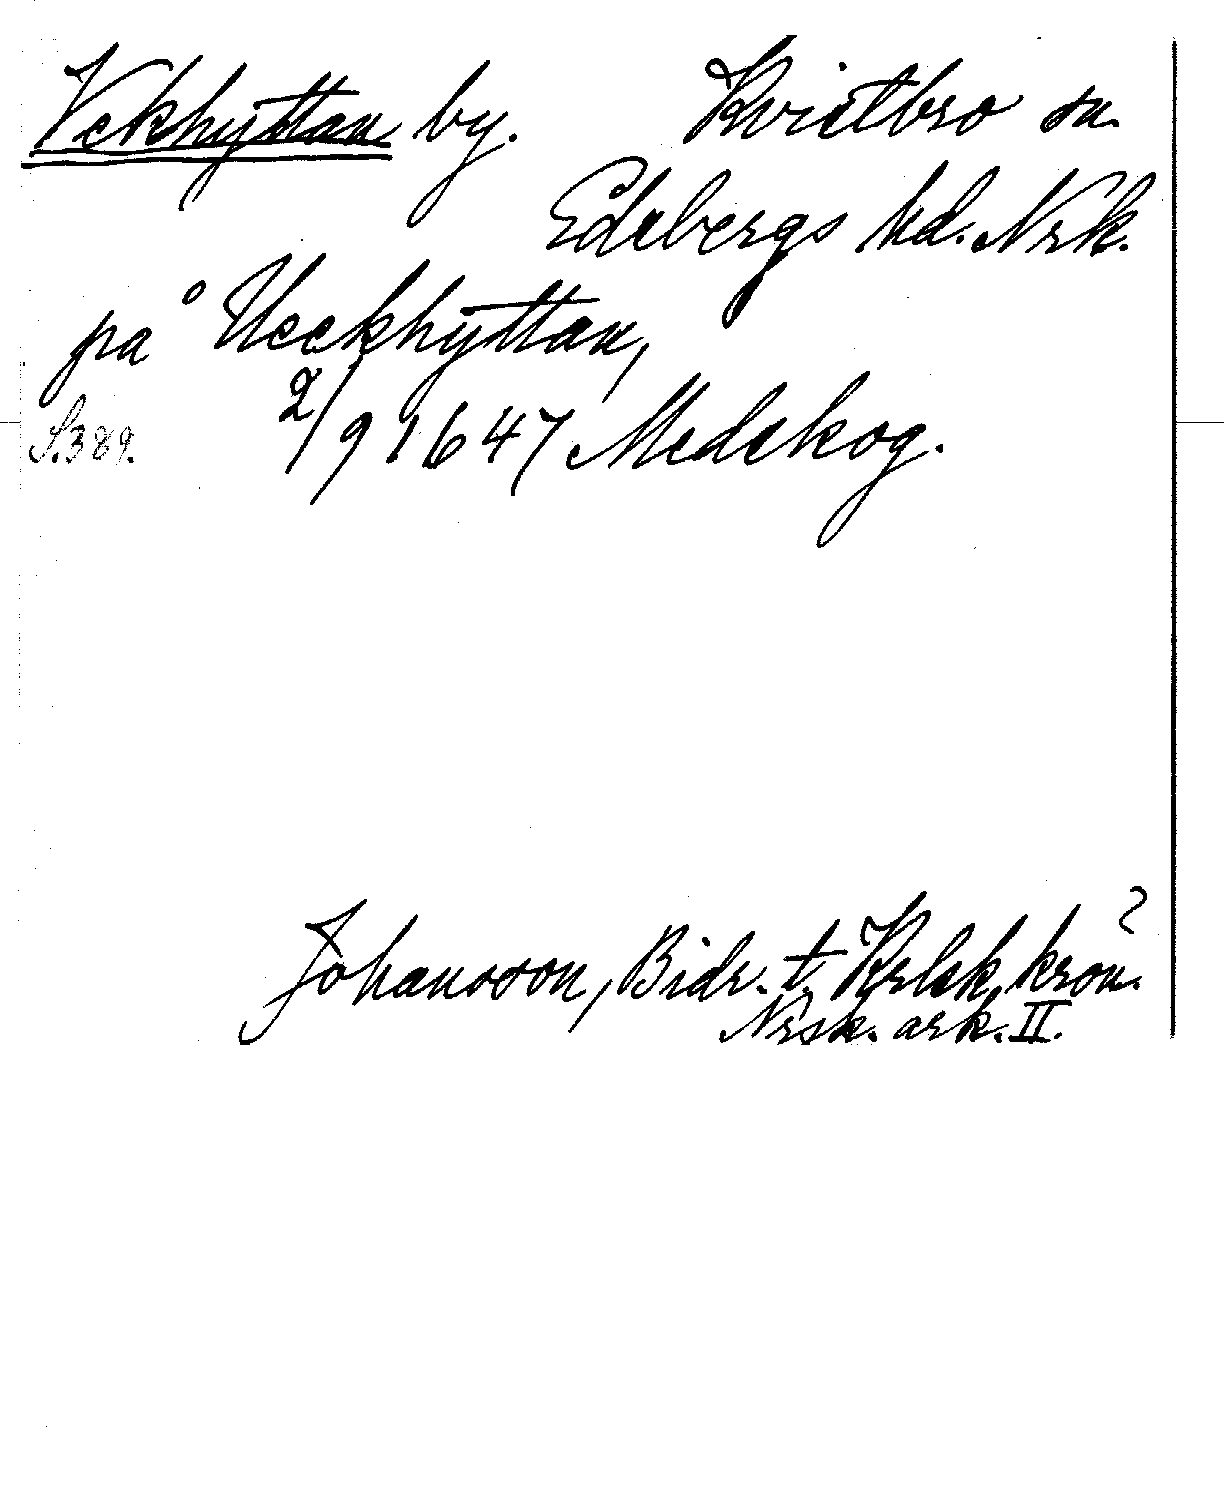 Vekhyttan by. Kvistbro sn.
Edsbergs hd. Nrk.
på Ueckhyttan,
S. 389. 2/9 1647 Medskog.
Johansson, Bidr. t. Krlsk. krön.?
Nrsk. ark. II.